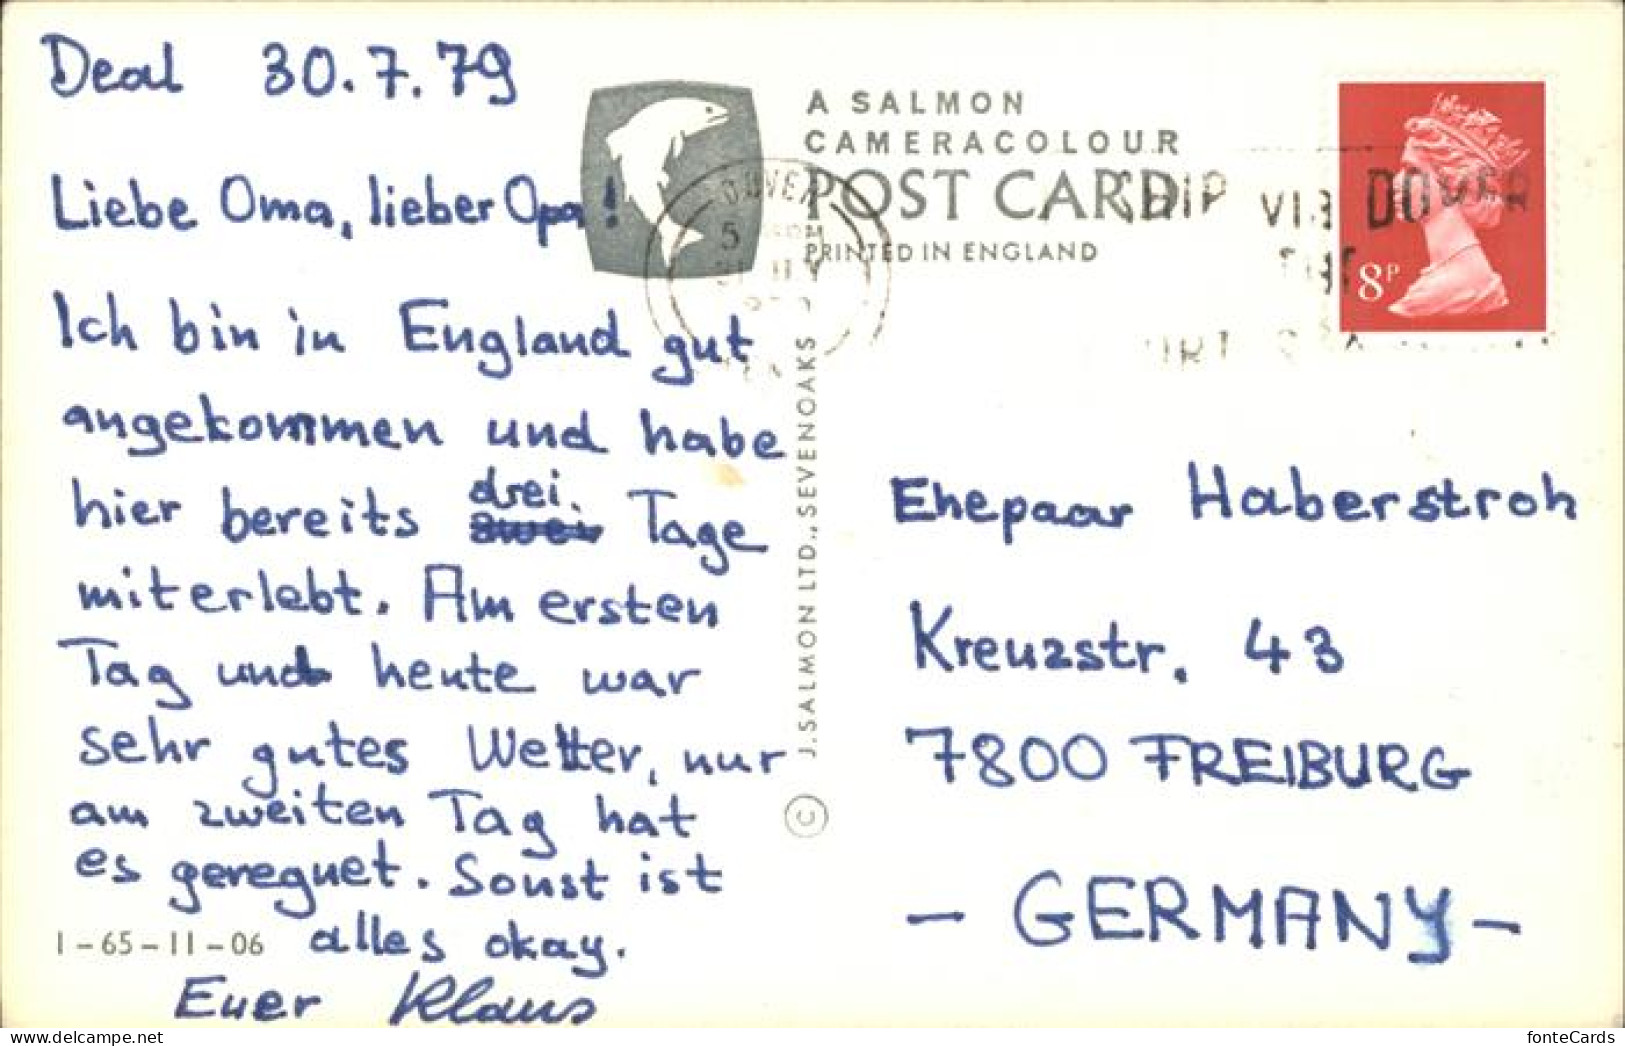 Deal 30.7.79
Liebe Oma, lieber Opa!
Ich bin in England gut
angekommen und habe
hier bereits drei Tage
miterlebt. Am ersten
Tag und heute war
sehr gutes Wetter, nur
am zweiten Tag hat
es geregnet. Sonst ist
alles okay.
Euer Klaus
1-65-11-06
A SALMON
CAMERACOLOUR
POST CARD
PRINTED IN ENGLAND
© J. SALMON LTD., SEVENOAKS
DOVER
SHIP VIA DOVER
8P
Ehepaar Haberstroh
Kreuzstr. 43
7800 FREIBURG
- GERMANY -
fonteCards